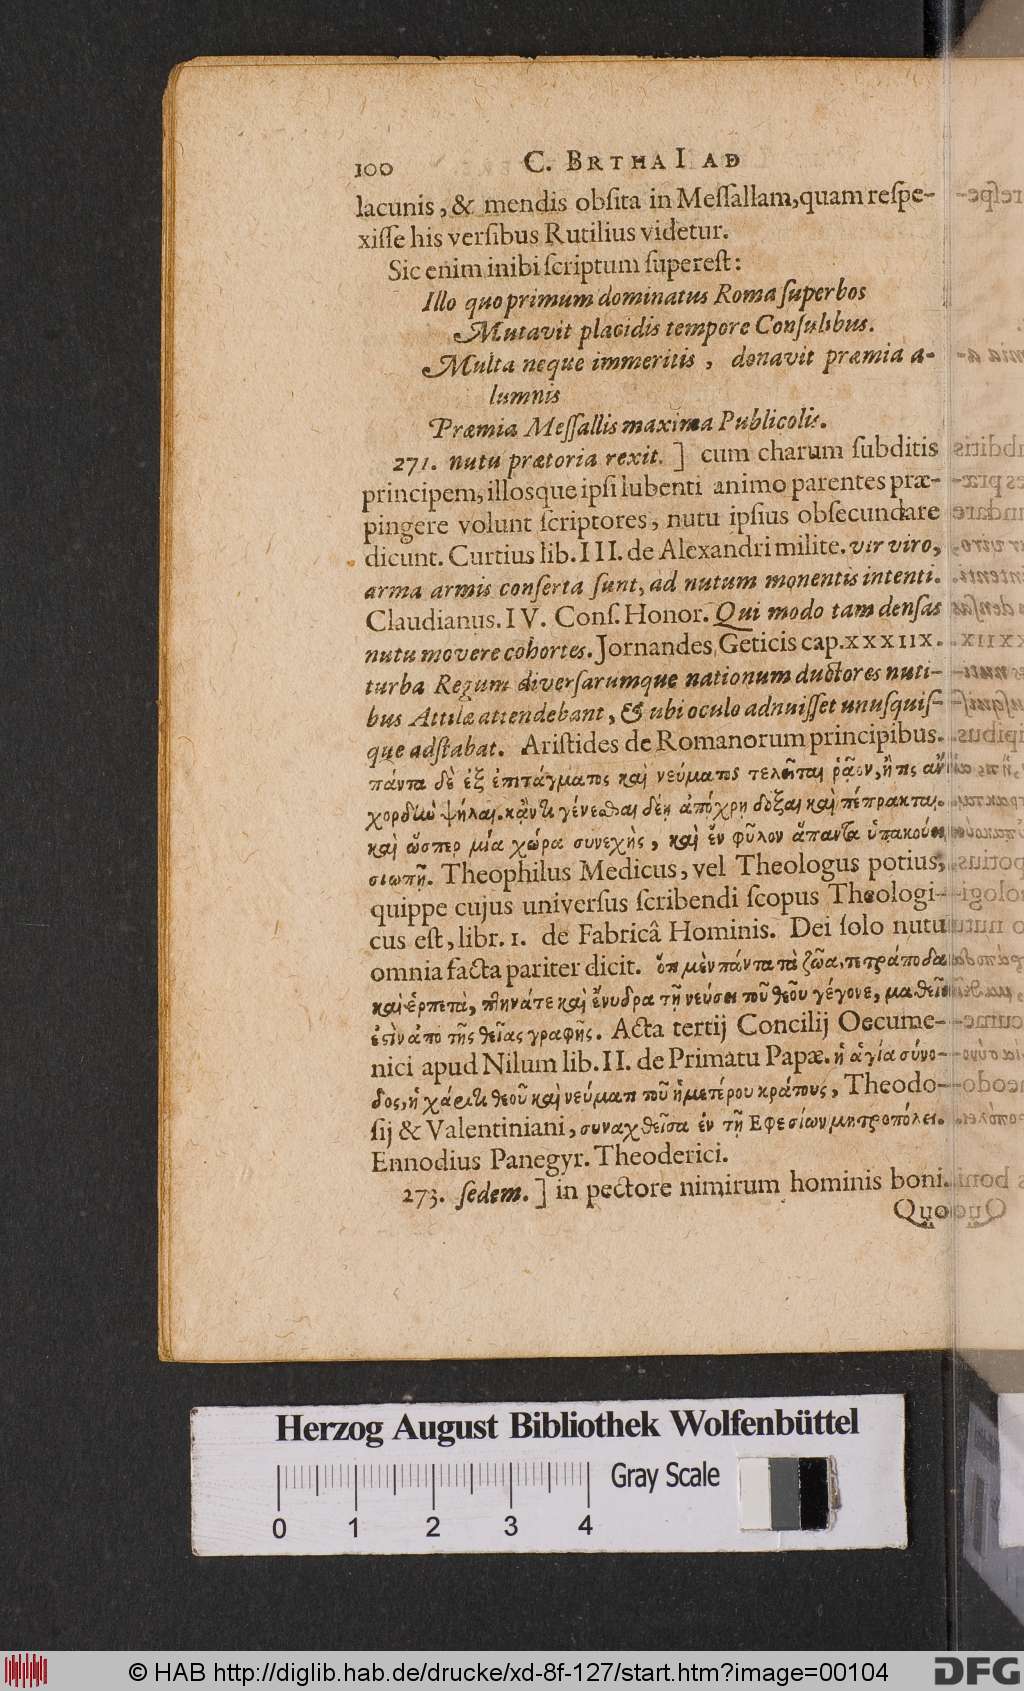 100 C. BRTHAI AD
lacunis, & mendis obsita in Messallam, quam respe-
xisse his versibus Rutilius videtur.
Sic enim inibi scriptum superest:
Illo quo primum dominatus Roma superbos
Mutavit placidis tempore Consulibus.
Multa neque immeritis, donavit præmia a-
lumnis
Præmia Messallis maxima Publicolis.
271. nutu prætoria rexit. ] cum charum subditis
principem, illosque ipsi lubenti animo parentes præ-
pingere volunt scriptores, nutu ipsius obsecundare
dicunt. Curtius lib. III. de Alexandri milite. vir viro,
arma armis conserta sunt, ad nutum monentis intenti.
Claudianus. IV. Cons. Honor. Qui modo tam densas
nutu movere cohortes. Jornandes Geticis cap. XXXIIX.
turba Regum diversarumque nationum ductores nuti-
bus Attilæ attendebant, & ubi oculo adnuisset unusquis-
que adstabat. Aristides de Romanorum principibus.
πάντα δὲ ἐξ ἐπιτάγματος καὶ νεύματος τελεῖται ῥᾷον, ἤ τις ἂν
χορδὴν ψήλαι. κἄν τι γένεσθαι δέῃ ἀπόχρη δόξαι καὶ πέπρακται.
καὶ ὥσπερ μία χώρα συνεχὴς, καὶ ἓν φῦλον ἅπαντα ὑπακούει
σιωπῇ. Theophilus Medicus, vel Theologus potius,
quippe cujus universus scribendi scopus Theologi-
cus est, libr. 1. de Fabricâ Hominis. Dei solo nutu
omnia facta pariter dicit. ὅτι μὲν πάντα τὰ ζῶα, τετράποδα
καὶ ἑρπετὰ, πτηνά τε καὶ ἔνυδρα τῇ νεύσει τοῦ θεοῦ γέγονε, μαθεῖν
ἐστὶν ἀπὸ τῆς θείας γραφῆς. Acta tertij Concilij Oecume-
nici apud Nilum lib. II. de Primatu Papæ. ἡ ἁγία σύνο-
δος, ἡ χάριτι θεοῦ καὶ νεύματι τοῦ ἡμετέρου κράτους, Theodo-
sij & Valentiniani, συναχθεῖσα ἐν τῇ Εφεσίων μητροπόλει.
Ennodius Panegyr. Theoderici.
273. sedem. ] in pectore nimirum hominis boni.
Quo
Herzog August Bibliothek Wolfenbüttel
Gray Scale
0 1 2 3 4
© HAB http://diglib.hab.de/drucke/xd-8f-127/start.htm?image=00104
DFG